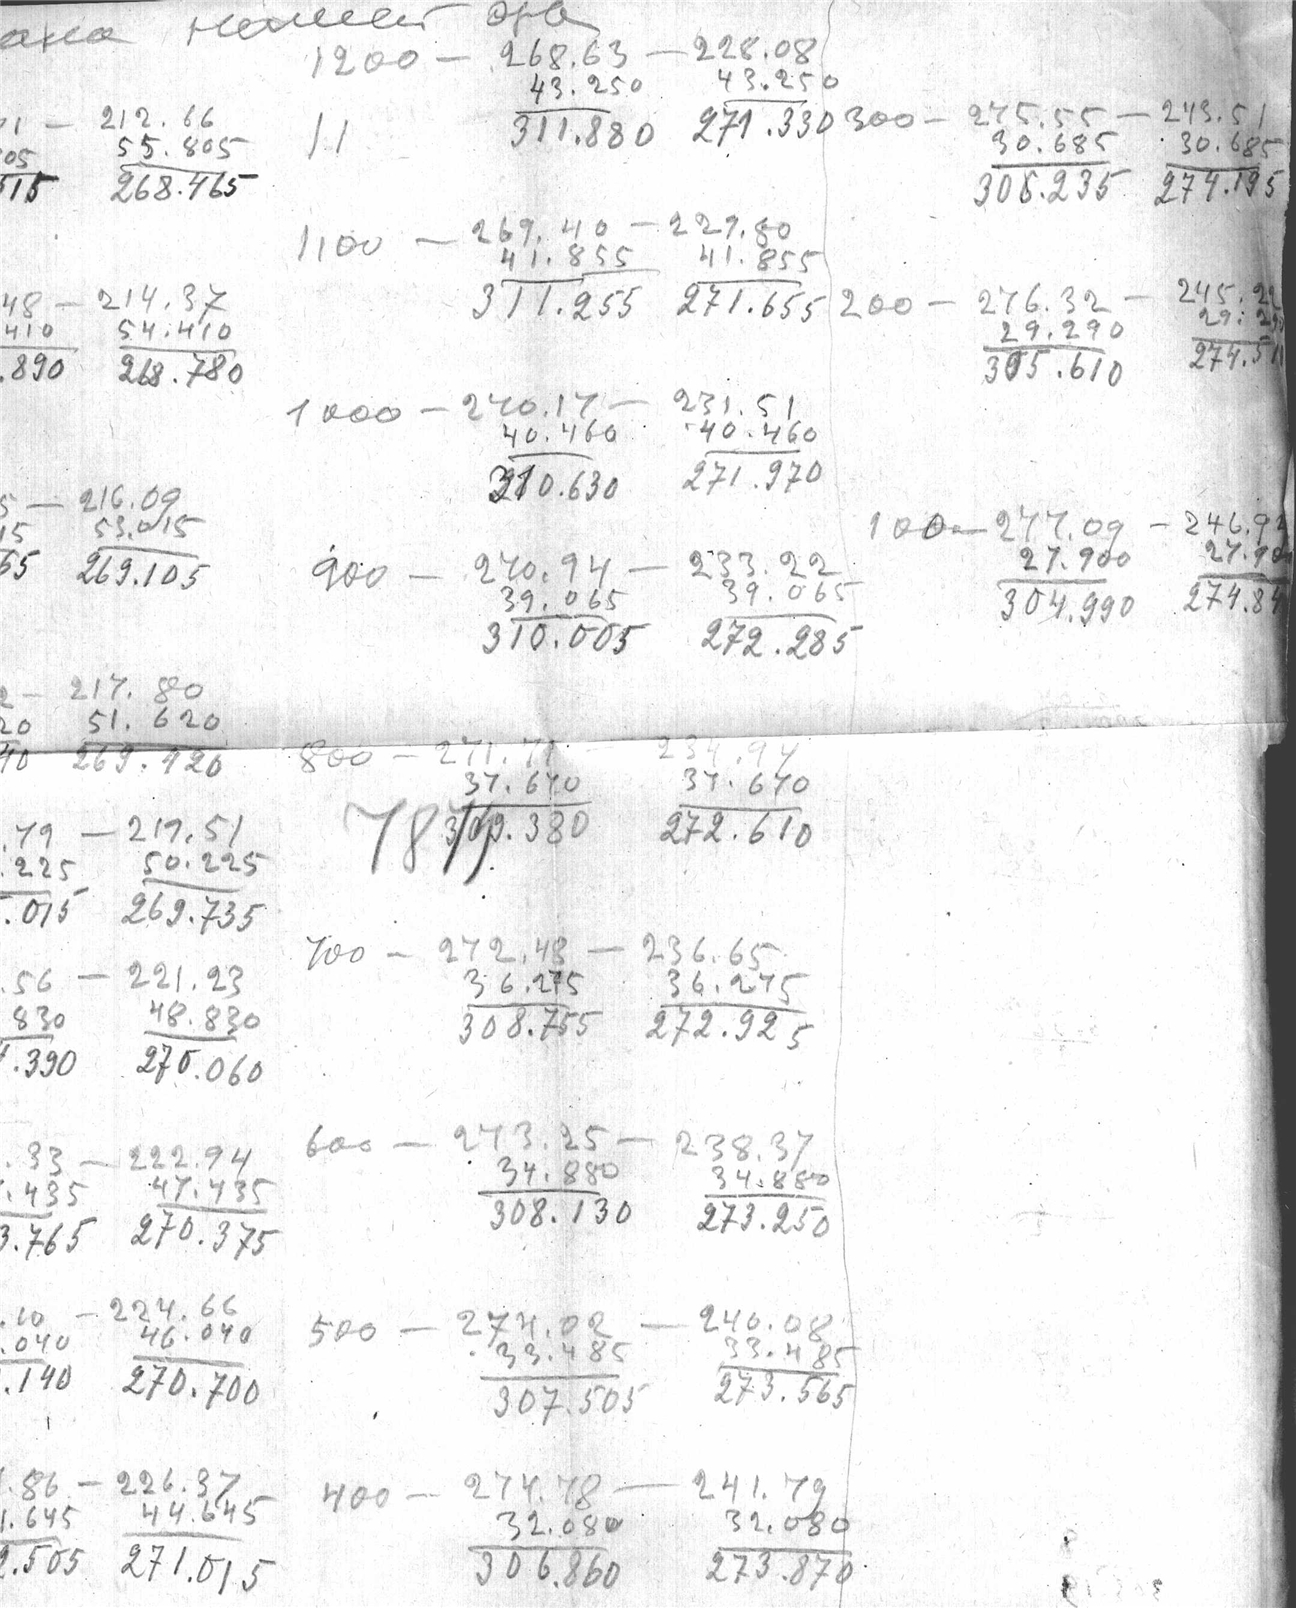 1200 — 268.63 — 228.08
43.250 43.250
311.880 271.330
11
1100 — 269.40 — 229.80
41.855 41.855
311.255 271.655
1000 — 270.17 — 231.51
40.460 40.460
310.630 271.970
900 — 270.94 — 233.22
39.065 39.065
310.005 272.285
800 — 271.71 — 234.94
37.670 37.670
309.380 272.610
700 — 272.48 — 236.65
36.275 36.275
308.755 272.925
600 — 273.25 — 238.37
34.880 34.880
308.130 273.250
500 — 274.02 — 240.08
33.485 33.485
307.505 273.565
400 — 274.78 — 241.79
32.080 32.080
306.860 273.870
300 — 275.55 — 243.51
30.685 30.685
306.235 274.195
200 — 276.32 — 245.22
29.290 29.2
305.610 274.5
100 — 277.09 — 246.9
27.900 27.90
304.990 274.84
71 — 212.66
05 55.805
515 268.465
48 — 214.37
410 54.410
.890 268.780
5 — 216.09
15 53.015
65 269.105
2 — 217.80
20 51.620
40 269.420
.79 — 219.51
.225 50.225
.015 269.735
.56 — 221.23
830 48.830
.390 270.060
.33 — 222.94
.435 47.435
3.765 270.375
.10 — 224.66
.040 46.040
.140 270.700
.86 — 226.37
.645 44.645
2.505 271.015